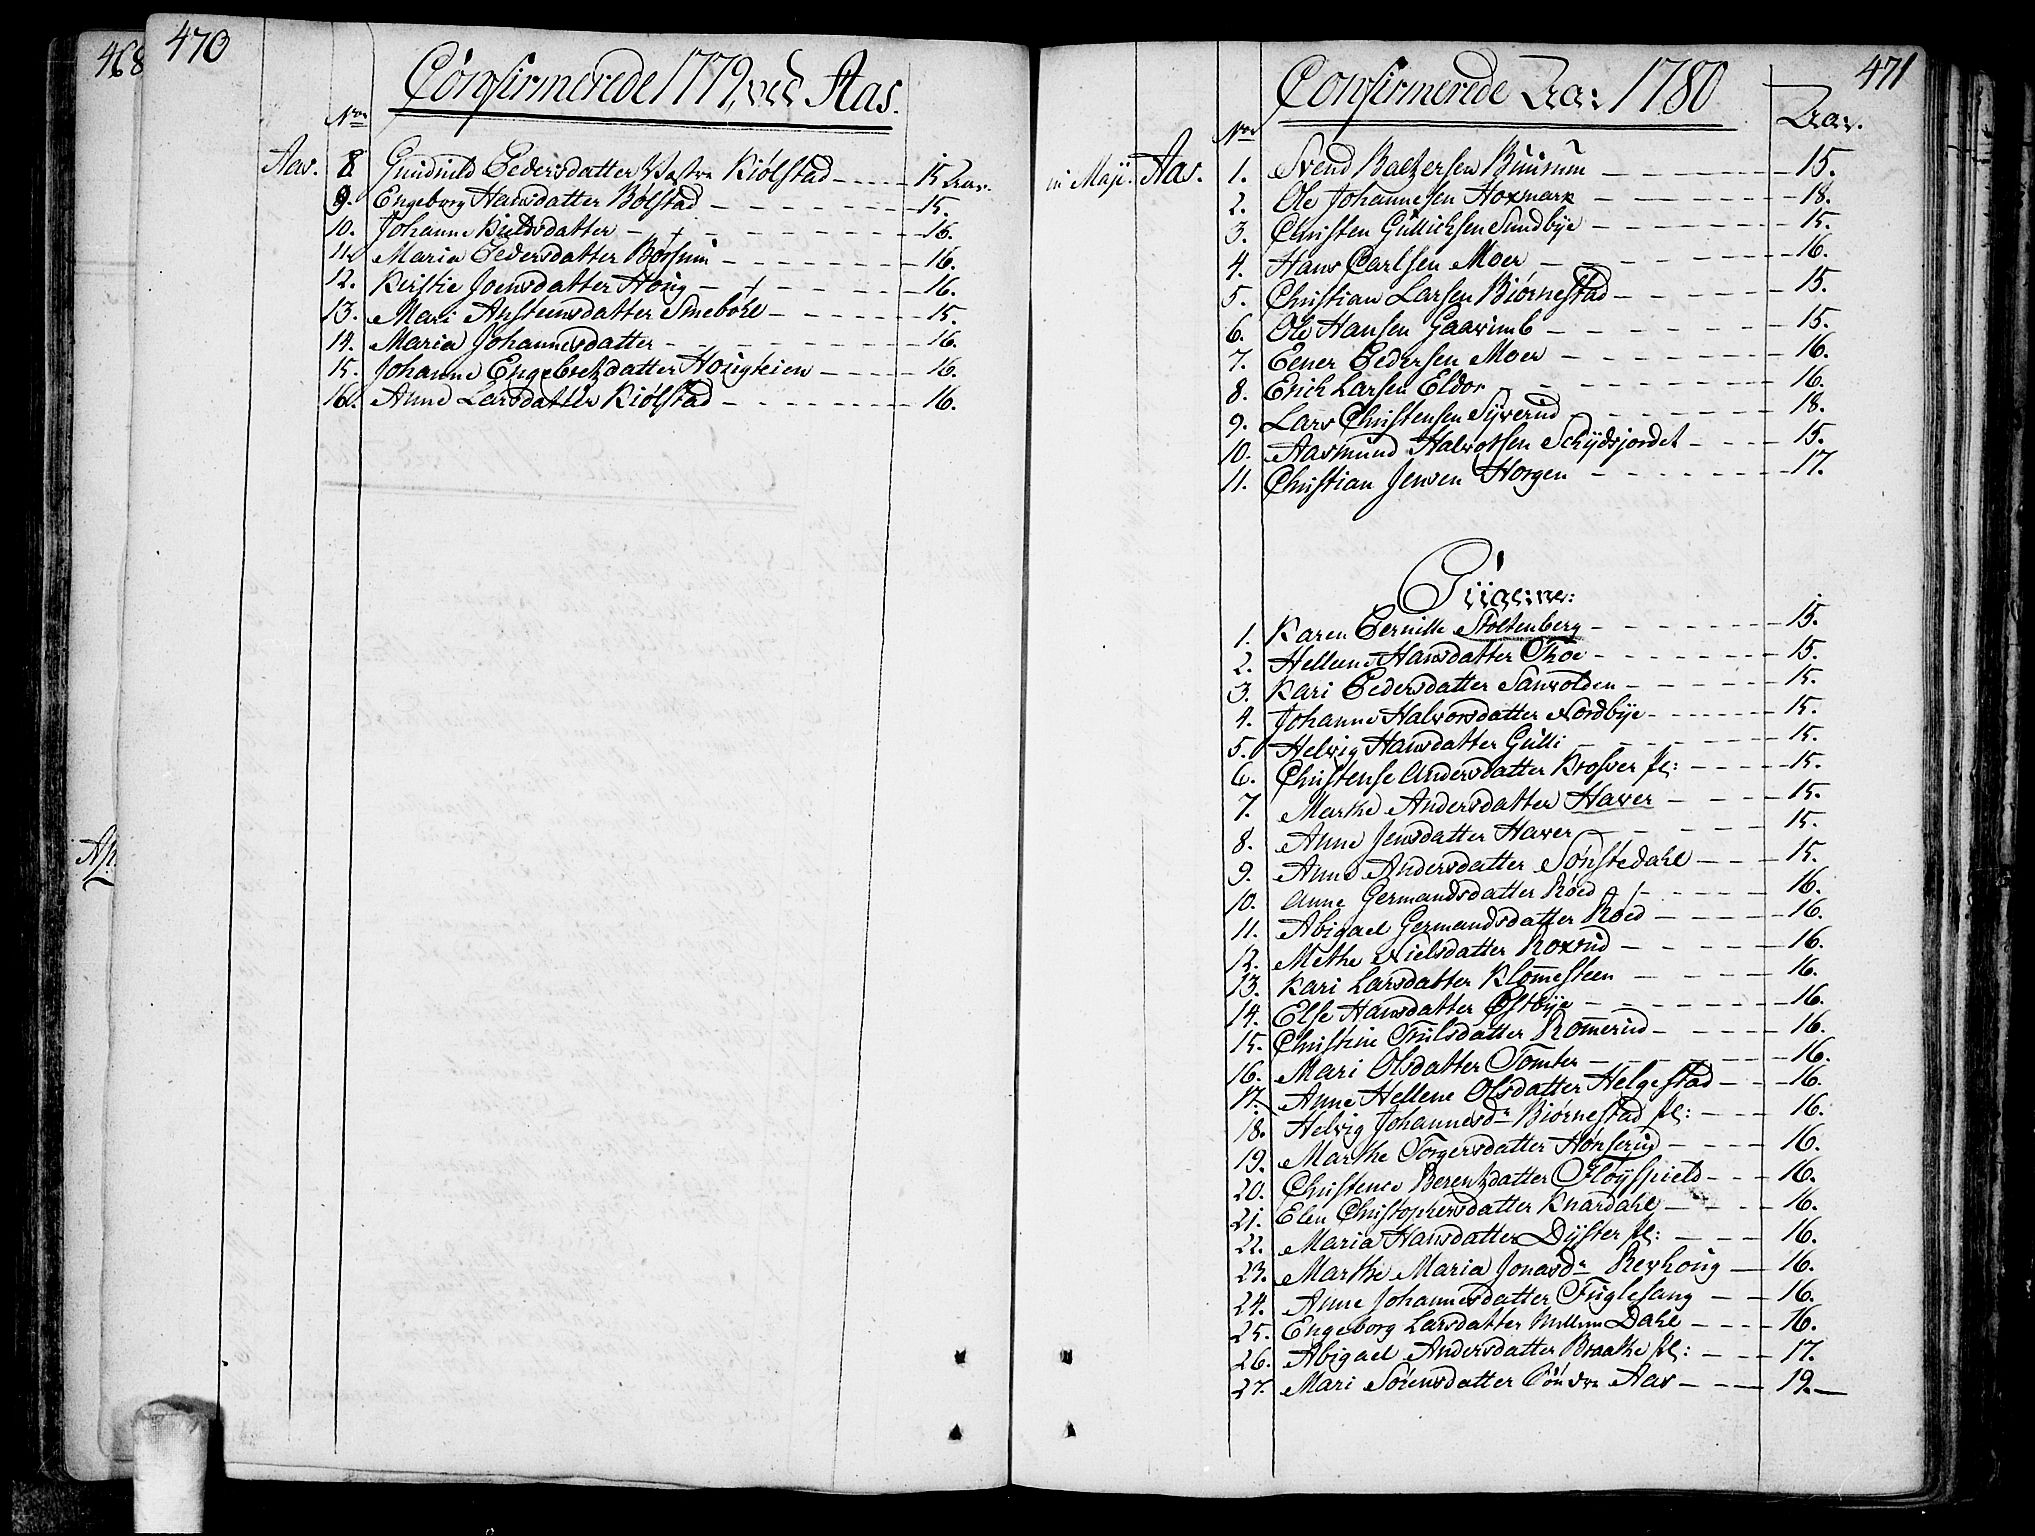 468
470
Confirmerede 1779, ved Aas.
Nrs
Aas. 8 Gundnild Pedersdatter Vestre Kiølstad - - - - 15 Aar.
9. Engeborg Hansdatter Bølstad - - - - 15.
10. Johanne Kiulsdatter - - - - 16.
11. Maria Pedersdatter Børsum - - - - 16.
12. Kirstie Joensdatter Houg - - - - 16.
13. Mari Ansteensdatter Smebøle - - - - 15.
14. Maria Johannesdatter - - - - 16.
15. Johanne Engebretzdatter Hougteien - - - - 16.
16. Anne Larsdatter Kiølstad - - - - 16.
471
Confirmerede Aar 1780
Nrs Aar.
in Maji. Aas. 1. Svend Baltzersen - - - - 15.
2. Ole Johannesen Hoxmark - - - - 18.
3. Christen Gullichsen Sundbye - - - - 15.
4. Hans Carlsen Moer - - - - 16.
5. Christian Larsen Biørnestad - - - - 15.
6. Ole Hansen Gaarumb - - - - 15.
7. Peder Pedersen Moer - - - - 16.
8. Erich Larsen Eldor - - - - 16.
9. Lars Christensen Syverud - - - - 18.
10. Aasmund Halvorsen Schydsjordet - - - - 15.
11. Christian Jensen Horgen - - - - 17.
Piigerne:
1. Karen Pernille Stoltenberg - - - - 15.
2. Hellene Hansdatter Thoe - - - - 15.
3. Kari Pedersdatter Sanvolden - - - - 15.
4. Johanne Halvorsdatter Nordbye - - - - 15.
5. Helvig Hansdatter Gulli - - - - 15.
6. Christense Andersdatter Krosser pl: - - - - 15.
7. Marthe Andersdatter Haver - - - - 15.
8. Anne Jensdatter Haver - - - - 15.
9. Anne Andersdatter Sønstedahl - - - 15.
10. Anne Germandsdatter Røed - - - - 16.
11. Abigael Germandsdatter Røed - - - - 16.
12. Methe Nielsdatter Roxrud - - - - 16.
13. Kari Larsdatter Klommesteen - - - - 16.
14. Else Hansdatter Østbye - - - - 16.
15. Christine Trulsdatter Rommerud - - - - 16.
16. Mari Olsdatter Tomter - - - - 16.
17. Anne Hellene Olsdatter Helgestad - - - 16.
18. Helvig Johannesdr Biørnestad pl: - - - 16.
19. Marthe Torgersdatter Hønserud - - - - 16.
20. Christence Berentzdatter Fløyspield - - - 16.
21. Elen Christophersdatter Knardahl - - - - 16.
22. Maria Hansdatter Dyster pl: - - - - 16.
23. Marthe Maria Jonasdr Revhoug - - 16.
24. Anne Johannesdatter Fuglesang - - 16.
25. Engeborg Larsdatter Mellem Dahl - - - - 16.
26. Abigael Andersdatter Braathe pl: - - - 17.
27. Mari Sørensdatter Søndre Aas - - - 19. -